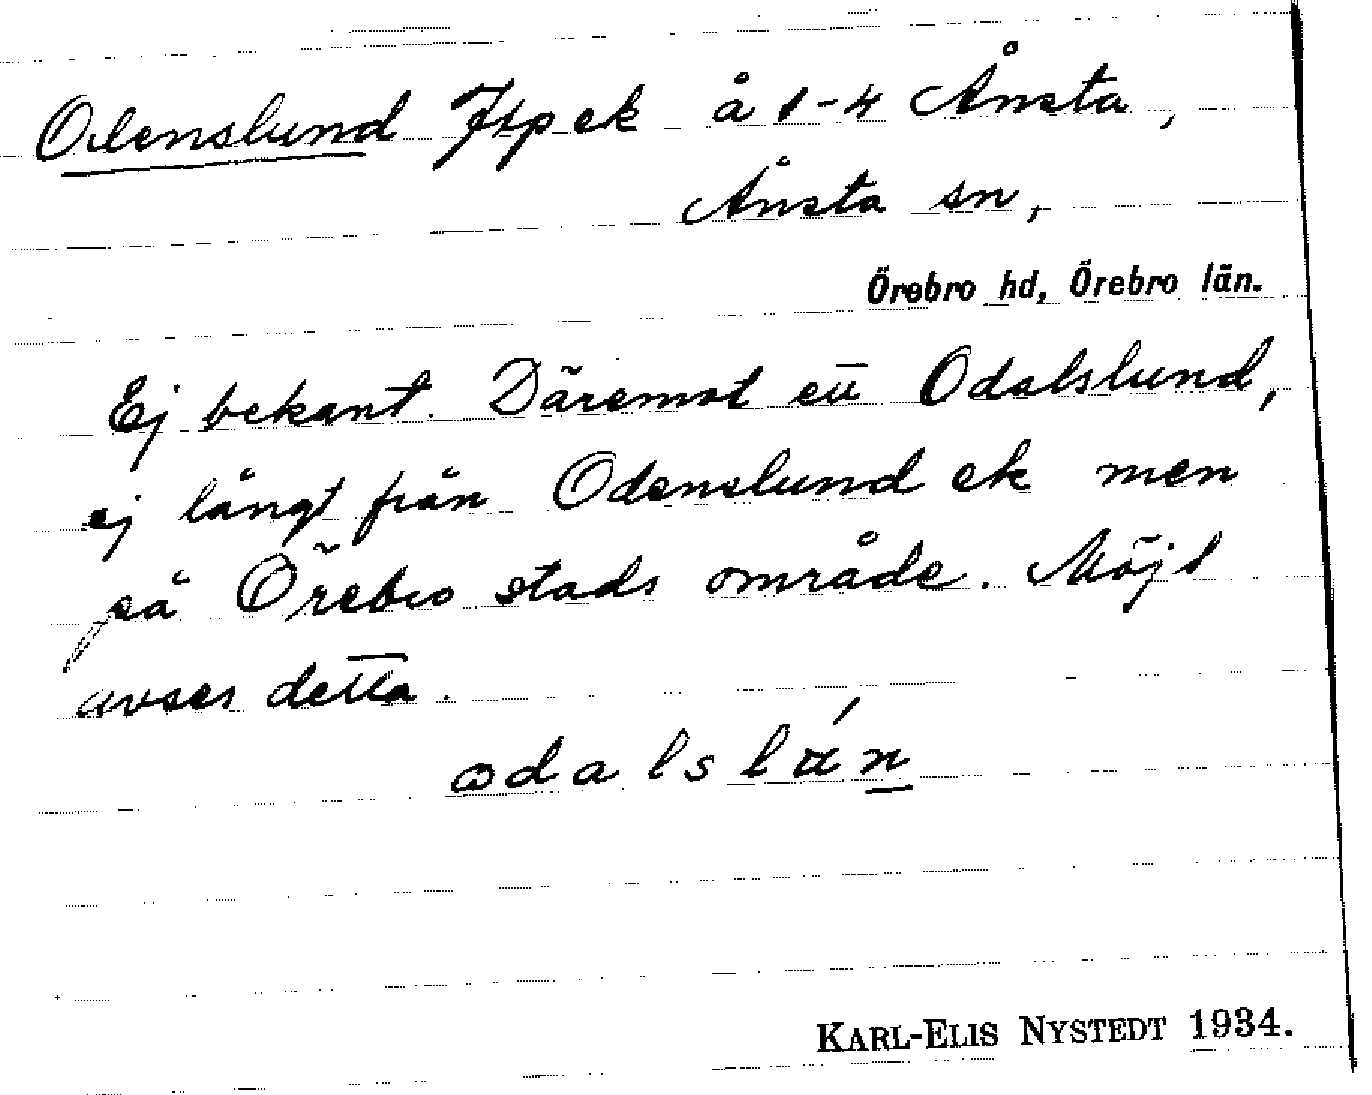 Odenslund Jtp ek å 1-4 Ånsta,
Ånsta sn,
Örebro hd, Örebro län.
Ej bekant. Däremot ett Odalslund,
ej långt från Odenslund ek men
på Örebro stads område. Möjl
avses detta.
odalslán
KARL-ELIS NYSTEDT 1934.